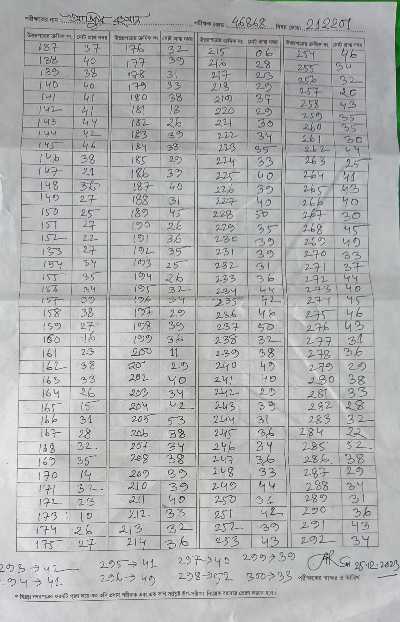 পরীক্ষকের নাম পরীক্ষক কোড : 46868 বিষয় কোড: 212801
উত্তরপত্রের ক্রমিক নং মোট প্রাপ্ত নম্বর উত্তরপত্রের ক্রমিক নং মোট প্রাপ্ত নম্বর উত্তরপত্রের ক্রমিক নং মোট প্রাপ্ত নম্বর উত্তরপত্রের ক্রমিক নং মোট প্রাপ্ত নম্বর
137 37 176 32 215 06 254 46
138 40 177 39 216 28 255
139 38 178 217 23 256 32
140 40 179 33 218 29 257
141 41 180 38 219 37 258 43
142 41 181 18 220 29 259 35
143 44 182 26 221 30 260 35
144 42 183 39 222 34 261 30
145 46 184 38 223 35 262 44
146 38 185 29 224 33 263 25
147 21 186 39 225 40 264 41
148 36 187 40 226 39 265 43
149 27 188 31 227 40 266 40
150 25 189 45 228 267 30
151 27 190 26 229 35 268 45
152 22 191 36 230 39 269 49
153 27 192 35 231 39 270 33
154 34 193 25 232 31 271 37
155 35 194 26 233 36 272 44
156 34 195 32 234 44 273 40
157 39 196 34 235 42 274 45
158 38 197 29 236 46 275 46
159 27 198 39 237 50 276 43
160 16 199 36 238 32 277 31
161 23 200 11 239 38 278 36
162 38 201 29 240 49 279 29
163 33 202 40 241 40 280 38
164 26 203 34 242 29 281 33
165 15 204 42 243 39 282 28
166 31 205 53 244 31 283 32
167 28 206 38 245 36 284 32
168 32 207 34 246 34 285 32
169 35 208 38 247 36 286 38
170 14 209 39 248 33 287 29
171 32 210 39 249 44 288 34
172 23 211 40 250 31 289 31
173 10 212 33 251 42 290 36
174 26 213 32 252 39 291 43
175 27 214 36 253 43 292 34
293 → 42 295 → 41 297 → 40 299 → 39
294 → 41 296 → 49 298 → 52 300 → 33 25.12.2023
পরীক্ষকের স্বাক্ষর ও তারিখ